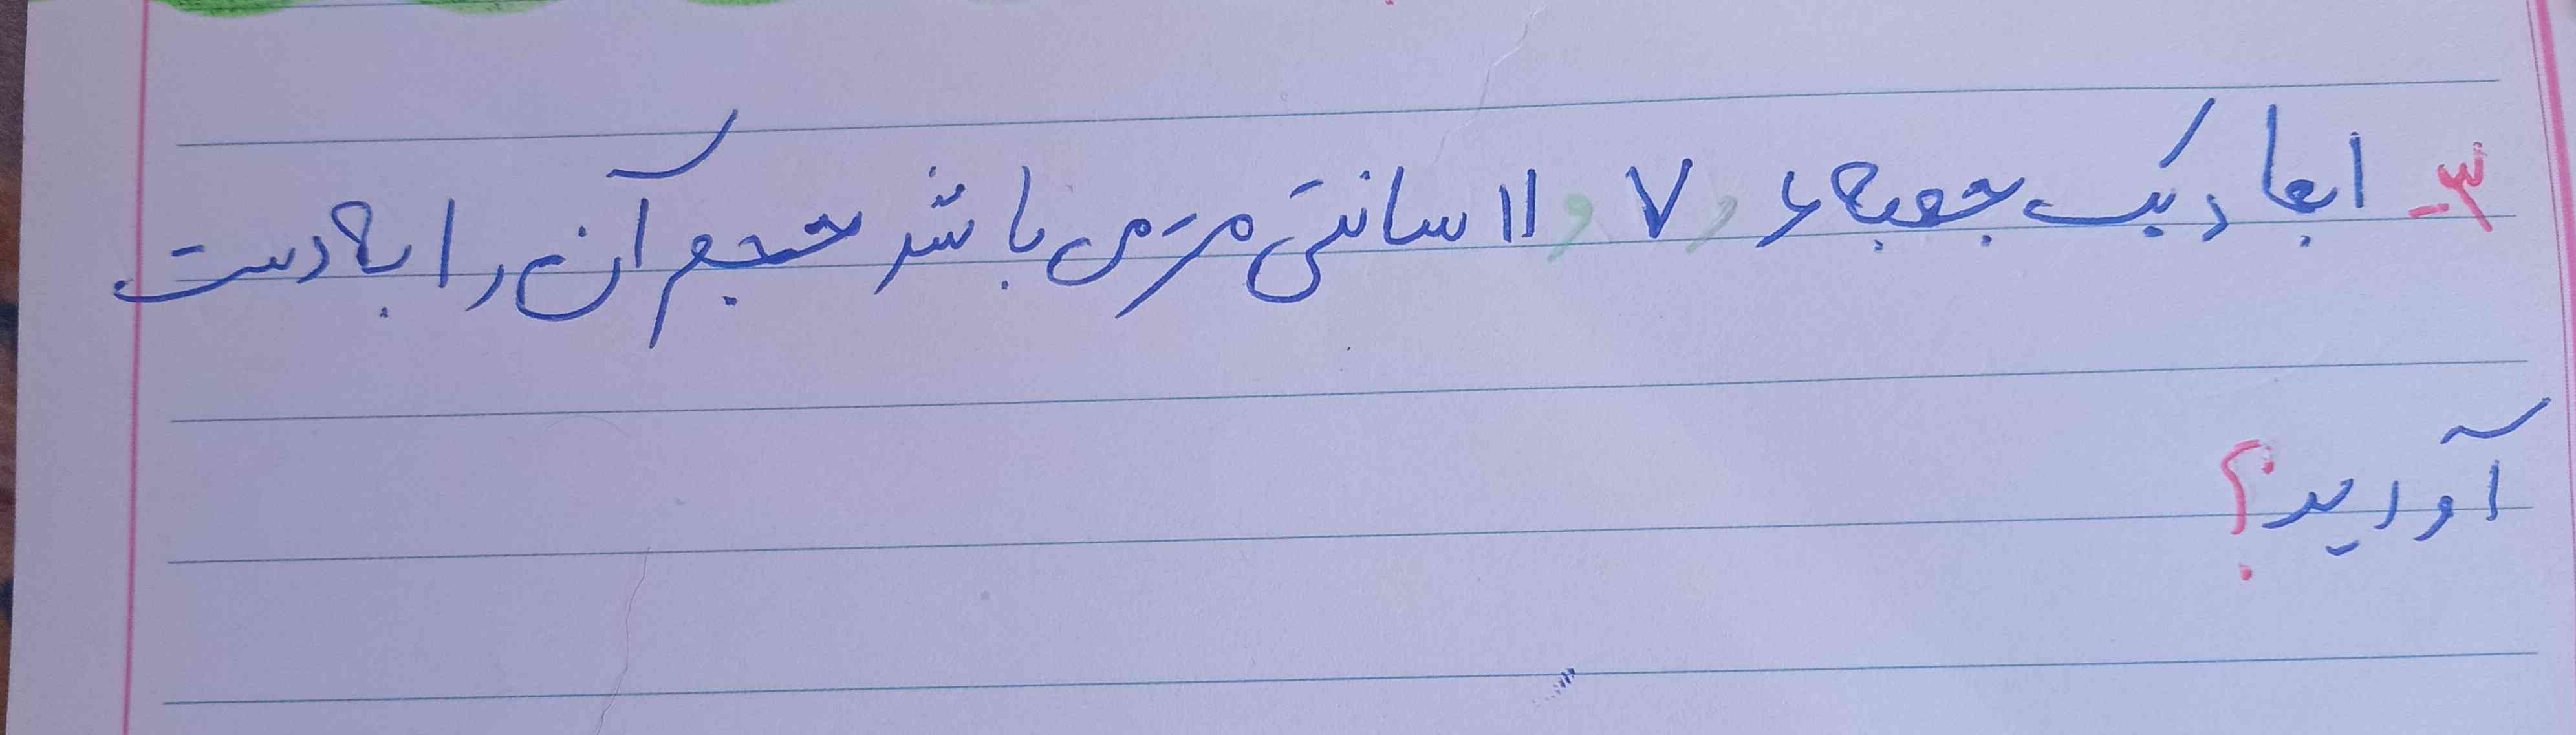 ۳- ابعاد یک جعبه ۶، ۷ و ۱۱ سانتی متر می باشد حجم آن را به دست
آورید؟